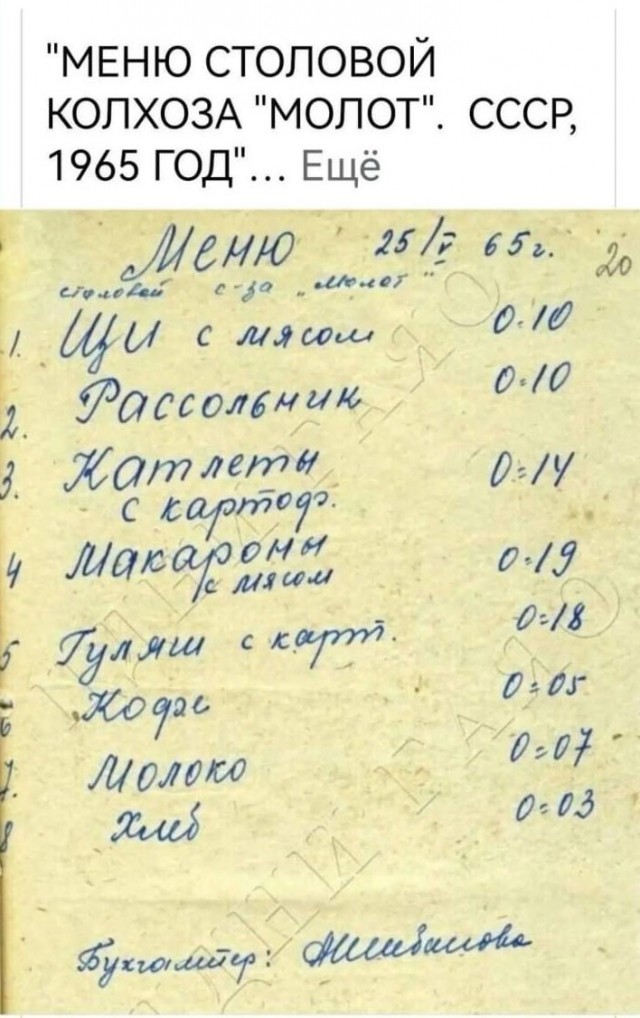 "МЕНЮ СТОЛОВОЙ
КОЛХОЗА "МОЛОТ". СССР,
1965 ГОД"... Ещё
Меню 25/V 65г. 20
столовой с-за "Молот"
1. Щи с мясом 0.10
2. Рассольник 0.10
3. Катлеты 0=14
с картоф.
4 Макароны 0.19
с мясом
5 Гуляш с карт. 0=18
6 Кофе 0=05
7. Молоко 0=07
8 Хлеб 0=03
Бухгалтер: